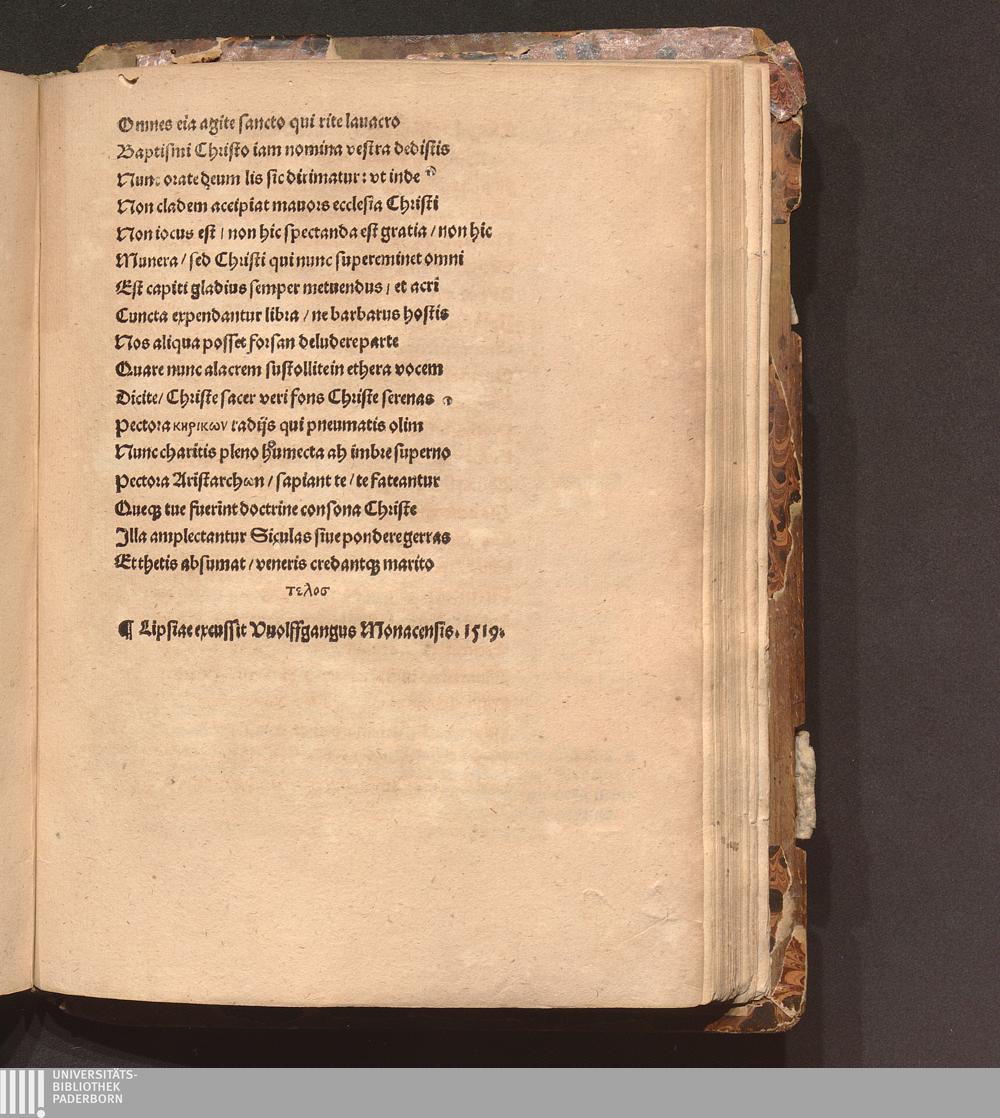 Omnes eia agite sancto qui rite lauacro
Baptismi Christo iam nomina vestra dedistis
Nunc orate deum lis sic dirimatur: vt inde
Non cladem aceipiat mauors ecclesia Christi
Non iocus est / non hic spectanda est gratia / non hic
Munera / sed Christi qui nunc supereminet omni
Est capiti gladius semper metuendus / et acri
Cuncta expendantur libra / ne barbarus hostis
Nos aliqua posset forsan deludere parte
Quare nunc alacrem sustollite in ethera vocem
Dicite / Christe sacer veri fons Christe serenas
Pectora κηρικων radijs qui pneumatis olim
Nunc charitis pleno humecta ah imbre superno
Pectora Aristarchωn / sapiant te / te fateantur
Queqȝ tue fuerint doctrine consona Christe
Illa amplectantur Siculas siue pondere gerras
Et thetis absumat / veneris credantqȝ marito
τελοσ
¶ Lipsiae excussit Vuolffgangus Monacensis. 1519.
UNIVERSITÄTS-
BIBLIOTHEK
PADERBORN